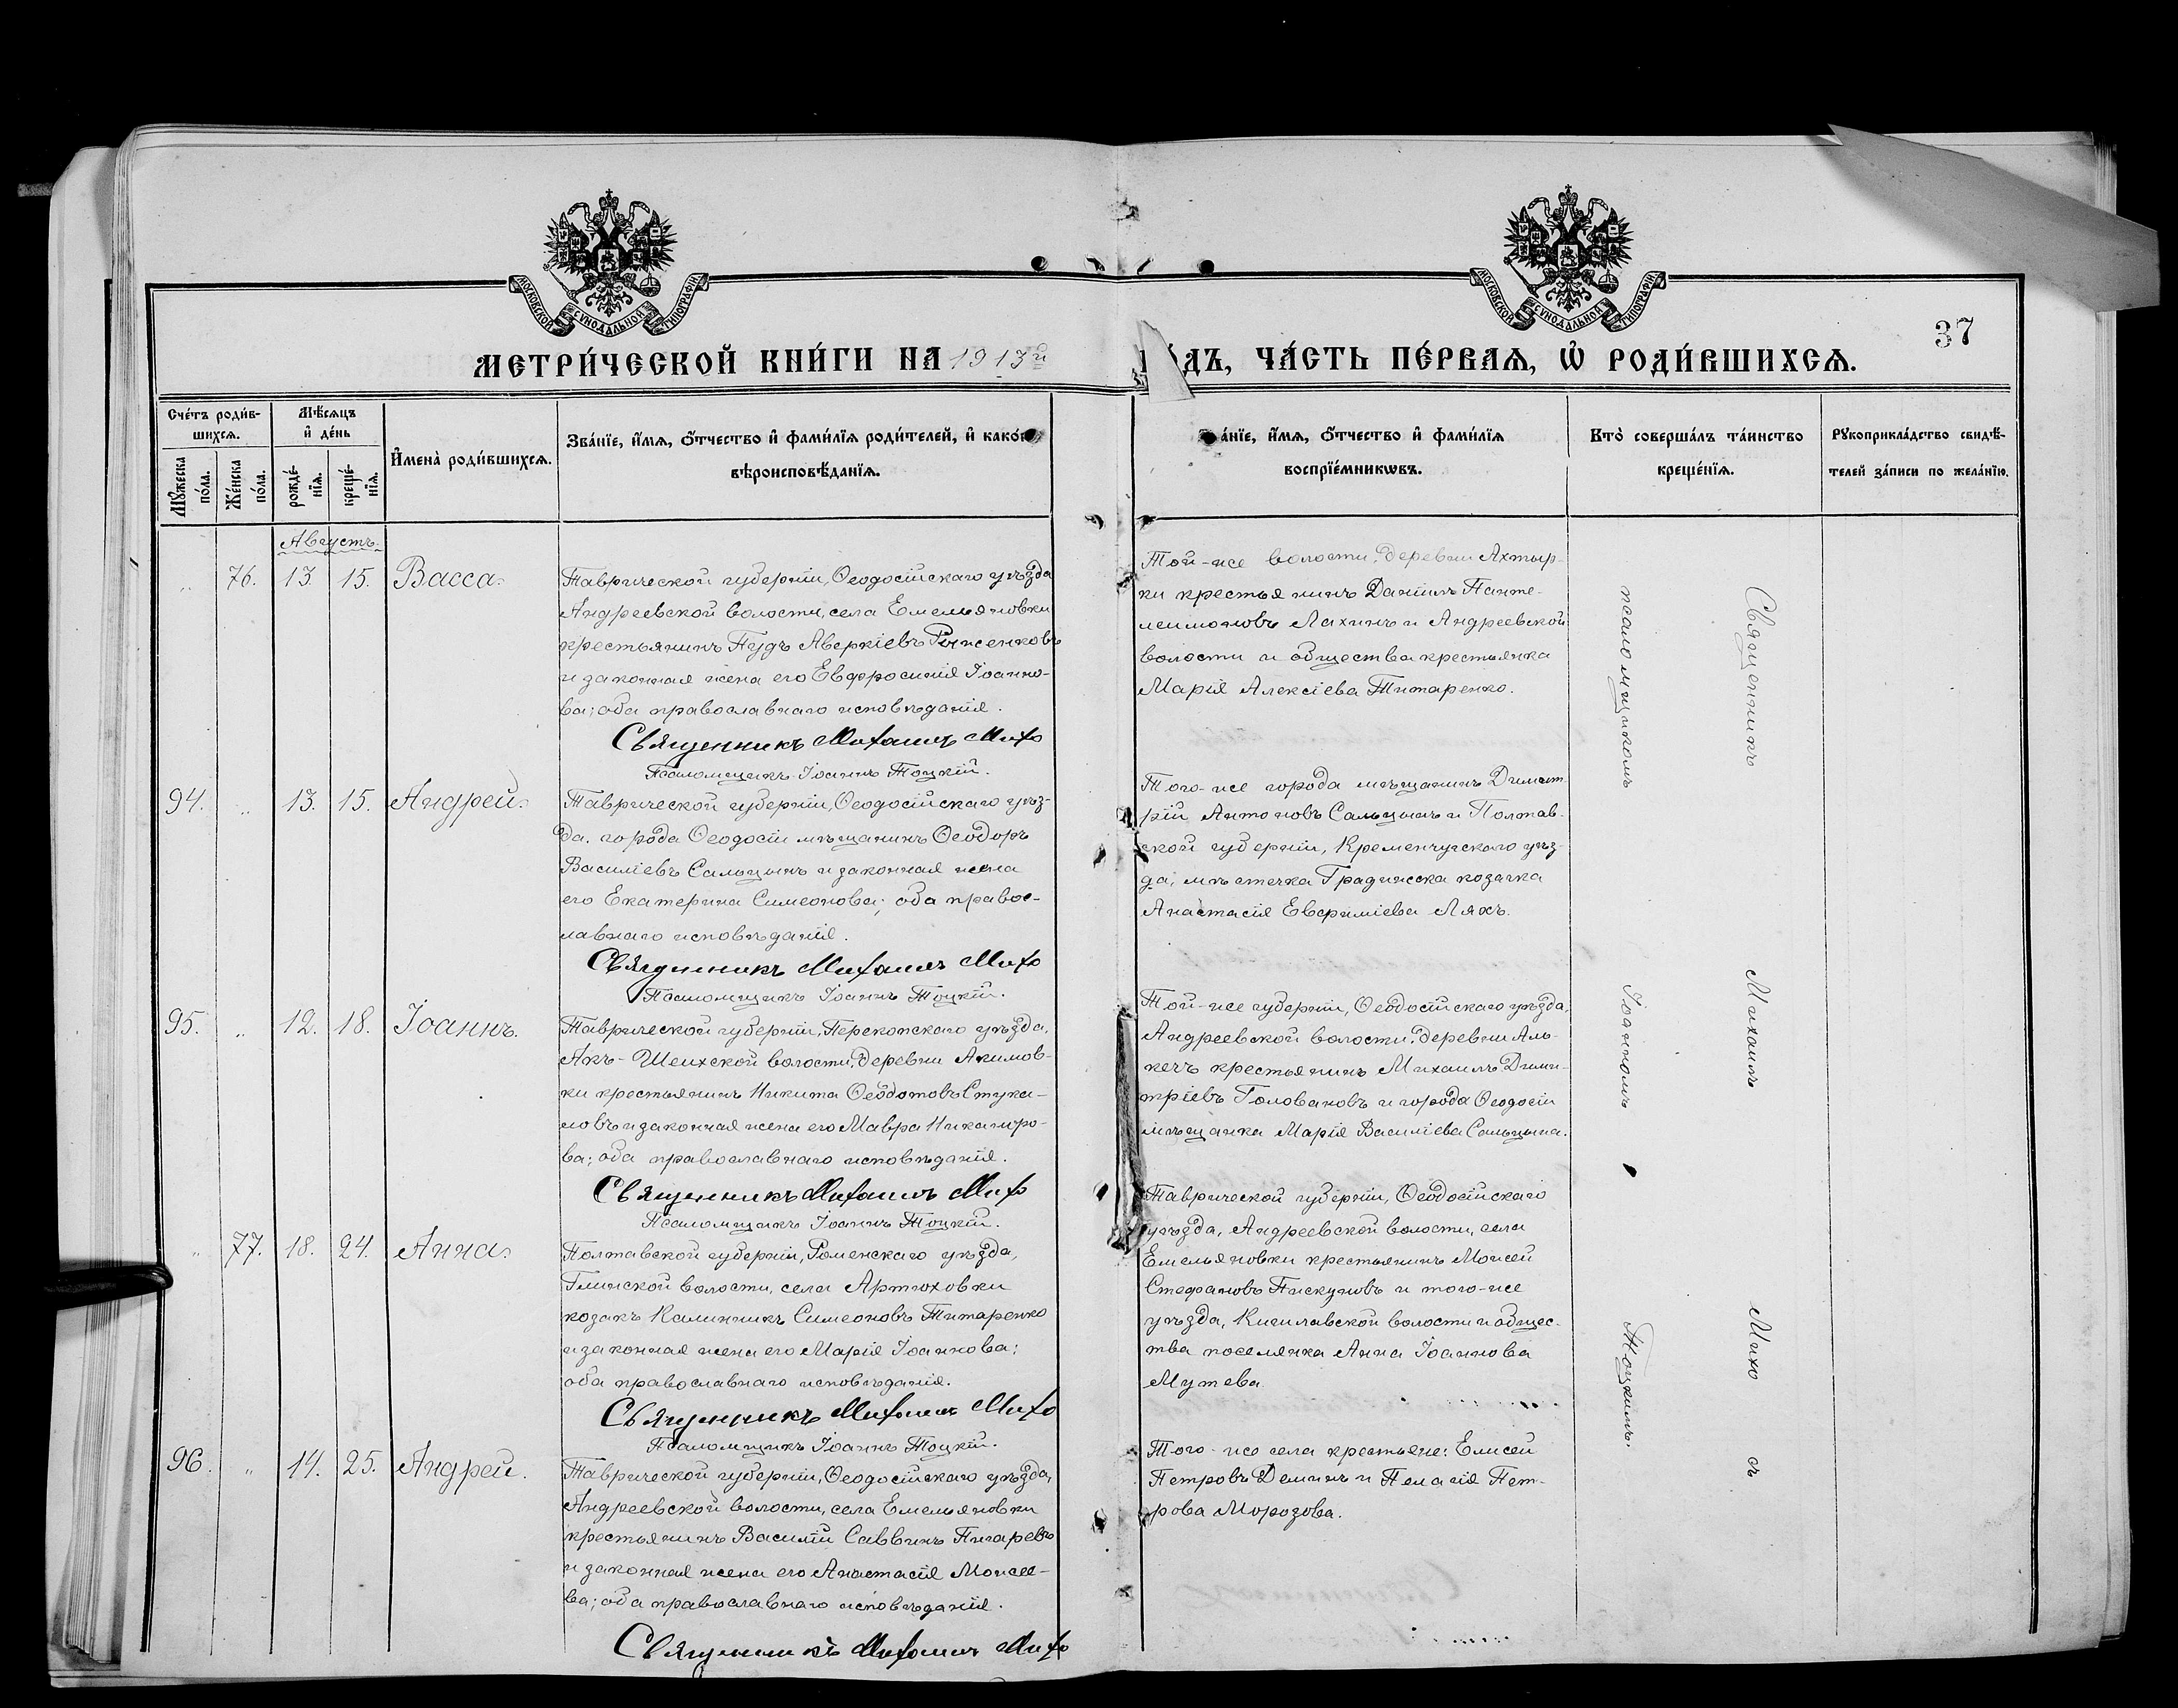 МОСКОВСКОЙ СУНОДАЛЬНОЙ ТИПОГРАФІИ.
МОСКОВСКОЙ СУНОДАЛЬНОЙ ТИПОГРАФІИ.
37
МЕТРИ́ЧЕСКОЙ КНИ́ГИ НА 1913й
ДЪ, ЧА́СТЬ ПЕ́РВАѦ, Ѡ҆ РОДИ́ВШИХСѦ.
Сче́тъ роди́в-
шихсѧ.
Мꙋжеска по́ла.
Же́нска по́ла.
Мѣ́сѧцъ
и҆ де́нь
рожде́-
нїѧ.
креще́-
нїѧ.
И҆мена̀ роди́вшихсѧ.
Зва́нїе, и҆́мѧ, ѻ҆́тчество и҆ фами́лїѧ роди́телей, и҆ како́
вѣроисповѣ́данїѧ.
а́нїе, и҆́мѧ, ѻ҆́тчество и҆ фами́лїѧ
воспрїе́мникѡвъ.
Кто̀ соверша́лъ та́инство
креще́нїѧ.
Рꙋкоприкла́дство свидѣ́-
телей за́писи по жела́нїю.
Августъ.
„ 76. 13. 15. Васса.
Таврической губерніи, Ѳеодосійскаго уѣзда
Андреевской волости, села Емельяновки
крестьянинъ Пудъ Аверкіевъ Рыженковъ
и законная жена его Евфросинія Іоанно-
ва; оба православнаго исповѣданія.
Священникъ Михаилъ Михо
Псаломщикъ Іоаннъ Тоцкій.
Той-же волости, деревни Ахтыр-
ки крестьянинъ Даніилъ Панте-
леимоновъ Лахинъ и Андреевской
волости и общества крестьянка
Марія Алексіева Титаренко.
94. „ 13. 15. Андрей.
Таврической губерніи, Ѳеодосійскаго уѣз-
да, города Ѳеодосіи мѣщанинъ Ѳеодоръ
Василіевъ Сальцынъ и законная жена
его Екатерина Симеонова; оба правос-
лавнаго исповѣданія.
Священникъ Михаилъ Михо
Псаломщикъ Іоаннъ Тоцкій.
Того-же города мѣщанинъ Димит-
рій Антоновъ Сальцынъ и Полтав-
ской губерніи, Кременчугскаго уѣз-
да, мѣстечка Градижска козачка
Анастасія Евфиміева Ляхъ.
95. „ 12. 18. Іоаннъ.
Таврической губерніи, Перекопскаго уѣзда,
Акъ-Шеихской волости, деревни Акимов-
ки крестьянинъ Никита Ѳеодотовъ Стука-
ловъ и законная жена его Мавра Никаноро-
ва; оба православнаго исповѣданія.
Священникъ Михаилъ Михо
Псаломщикъ Іоаннъ Тоцкій.
Той-же губерніи, Ѳеодосійскаго уѣзда,
Андреевской волости, деревни Аль-
кечъ крестьянинъ Михаилъ Дими-
тріевъ Головановъ и города Ѳеодосіи
мѣщанка Марія Василіева Сальцына.
„ 77. 18. 24. Анна.
Полтавской губерніи, Роменскаго уѣзда,
Глинской волости, села Артюховки
козакъ Каллиникъ Симеоновъ Титаренко
и законная жена его Марія Іоаннова;
оба православнаго исповѣданія.
Священникъ Михаилъ Михо
Псаломщикъ Іоаннъ Тоцкій.
Таврической губерніи, Ѳеодосійскаго
уѣзда, Андреевской волости, села
Емельяновки крестьянинъ Моисей
Стефановъ Пискуновъ и того-же
уѣзда, Кишлавской волости и общес-
тва поселянка Анна Іоаннова
Мутева.
96. „ 14. 25. Андрей.
Таврической губерніи, Ѳеодосійскаго уѣзда,
Андреевской волости, села Емельяновки
крестьянинъ Василій Саввинъ Пигаревъ
и законная жена его Анастасія Моисее-
ва; оба православнаго исповѣданія.
Священникъ Михаилъ Михо
Того-же села крестьяне: Елисей
Петровъ Деминъ и Пелагія Пет-
рова Морозова.
Священникъ Михаилъ Михо съ
псаломщикомъ Іоанномъ Тоцкимъ.